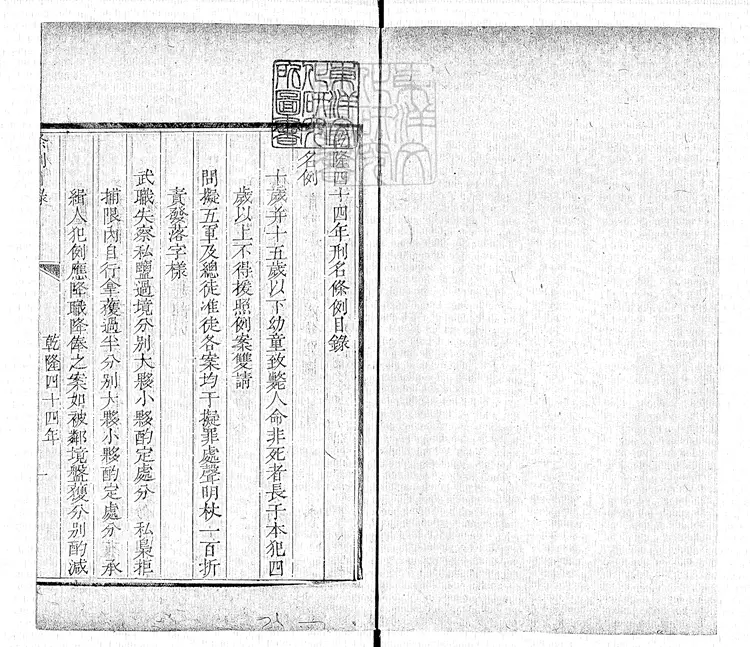 東洋文
化研究
所圖書
隆四十四年刑名條例目錄
名例
十歲并十五歲以下幼童致斃人命非死者長于本犯四
歲以上不得援照例案雙請
問擬五軍及總徒准徒各案均于擬罪處聲明杖一百折
責發落字樣
武職失察私鹽過境分別大夥小夥酌定處分 私梟拒
捕限內自行拿獲過半分別大夥小夥酌定處分 承
緝人犯例應降職降俸之案如被鄰境盤獲分別酌減
乾隆四十四年
一